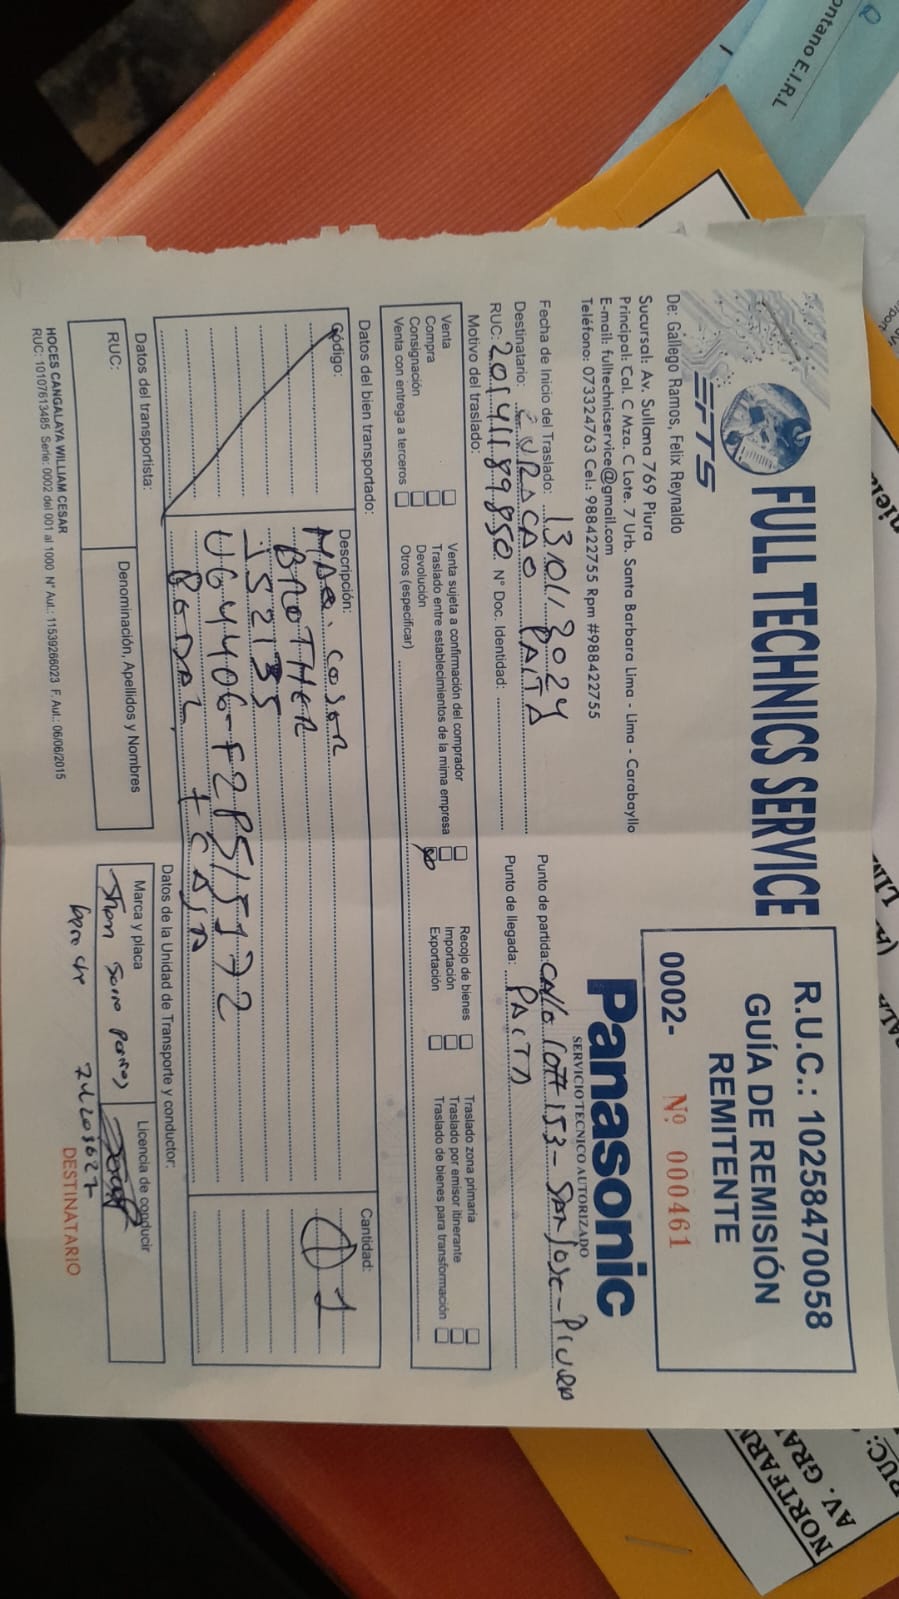 EFTS
FULL TECHNICS SERVICE
De: Gallego Ramos, Felix Reynaldo
Sucursal: Av. Sullana 769 Piura
Principal: Cal. C Mza. C Lote. 7 Urb. Santa Barbara Lima - Lima - Carabayllo
E-mail: fulltechnicservice@gmail.com
Teléfono: 073324763 Cel.: 988422755 Rpm #988422755
R.U.C.: 10258470058
GUÍA DE REMISIÓN
REMITENTE
0002- Nº 000461
Panasonic
SERVICIO TECNICO AUTORIZADO
Fecha de Inicio del Traslado: 13/01/2024
Punto de partida: Calle 153 - San Jose - Piura
Destinatario: CURACAO PAITA
Punto de llegada: PAITA
RUC: 20141189850 N° Doc. Identidad:
Motivo del traslado:
Venta
Compra
Consignación
Venta con entrega a terceros
Venta sujeta a confirmación del comprador
Traslado entre establecimientos de la mima empresa
Devolución
Otros (especificar)
Recojo de bienes
Importación
Exportación
Traslado zona primaria
Traslado por emisor itinerante
Traslado de bienes para transformación
Datos del bien transportado:
Código:
Descripción:
Cantidad:
Maq. coser 1
BROTHER 1
JS2135
U64406-F2P515172
PEDAL + CAJA
Datos del transportista:
RUC:
Denominación, Apellidos y Nombres
Datos de la Unidad de Transporte y conductor:
Marca y placa
Licencia de conducir
HOCES CANGALAYA WILLIAM CESAR
RUC: 10107613485 Serie: 0002 del 001 al 1000 N° Aut.: 11539266023 F. Aut.: 06/06/2015
DESTINATARIO
ontano E.I.R.L
NORTFAR
AV. GRA
RUC: